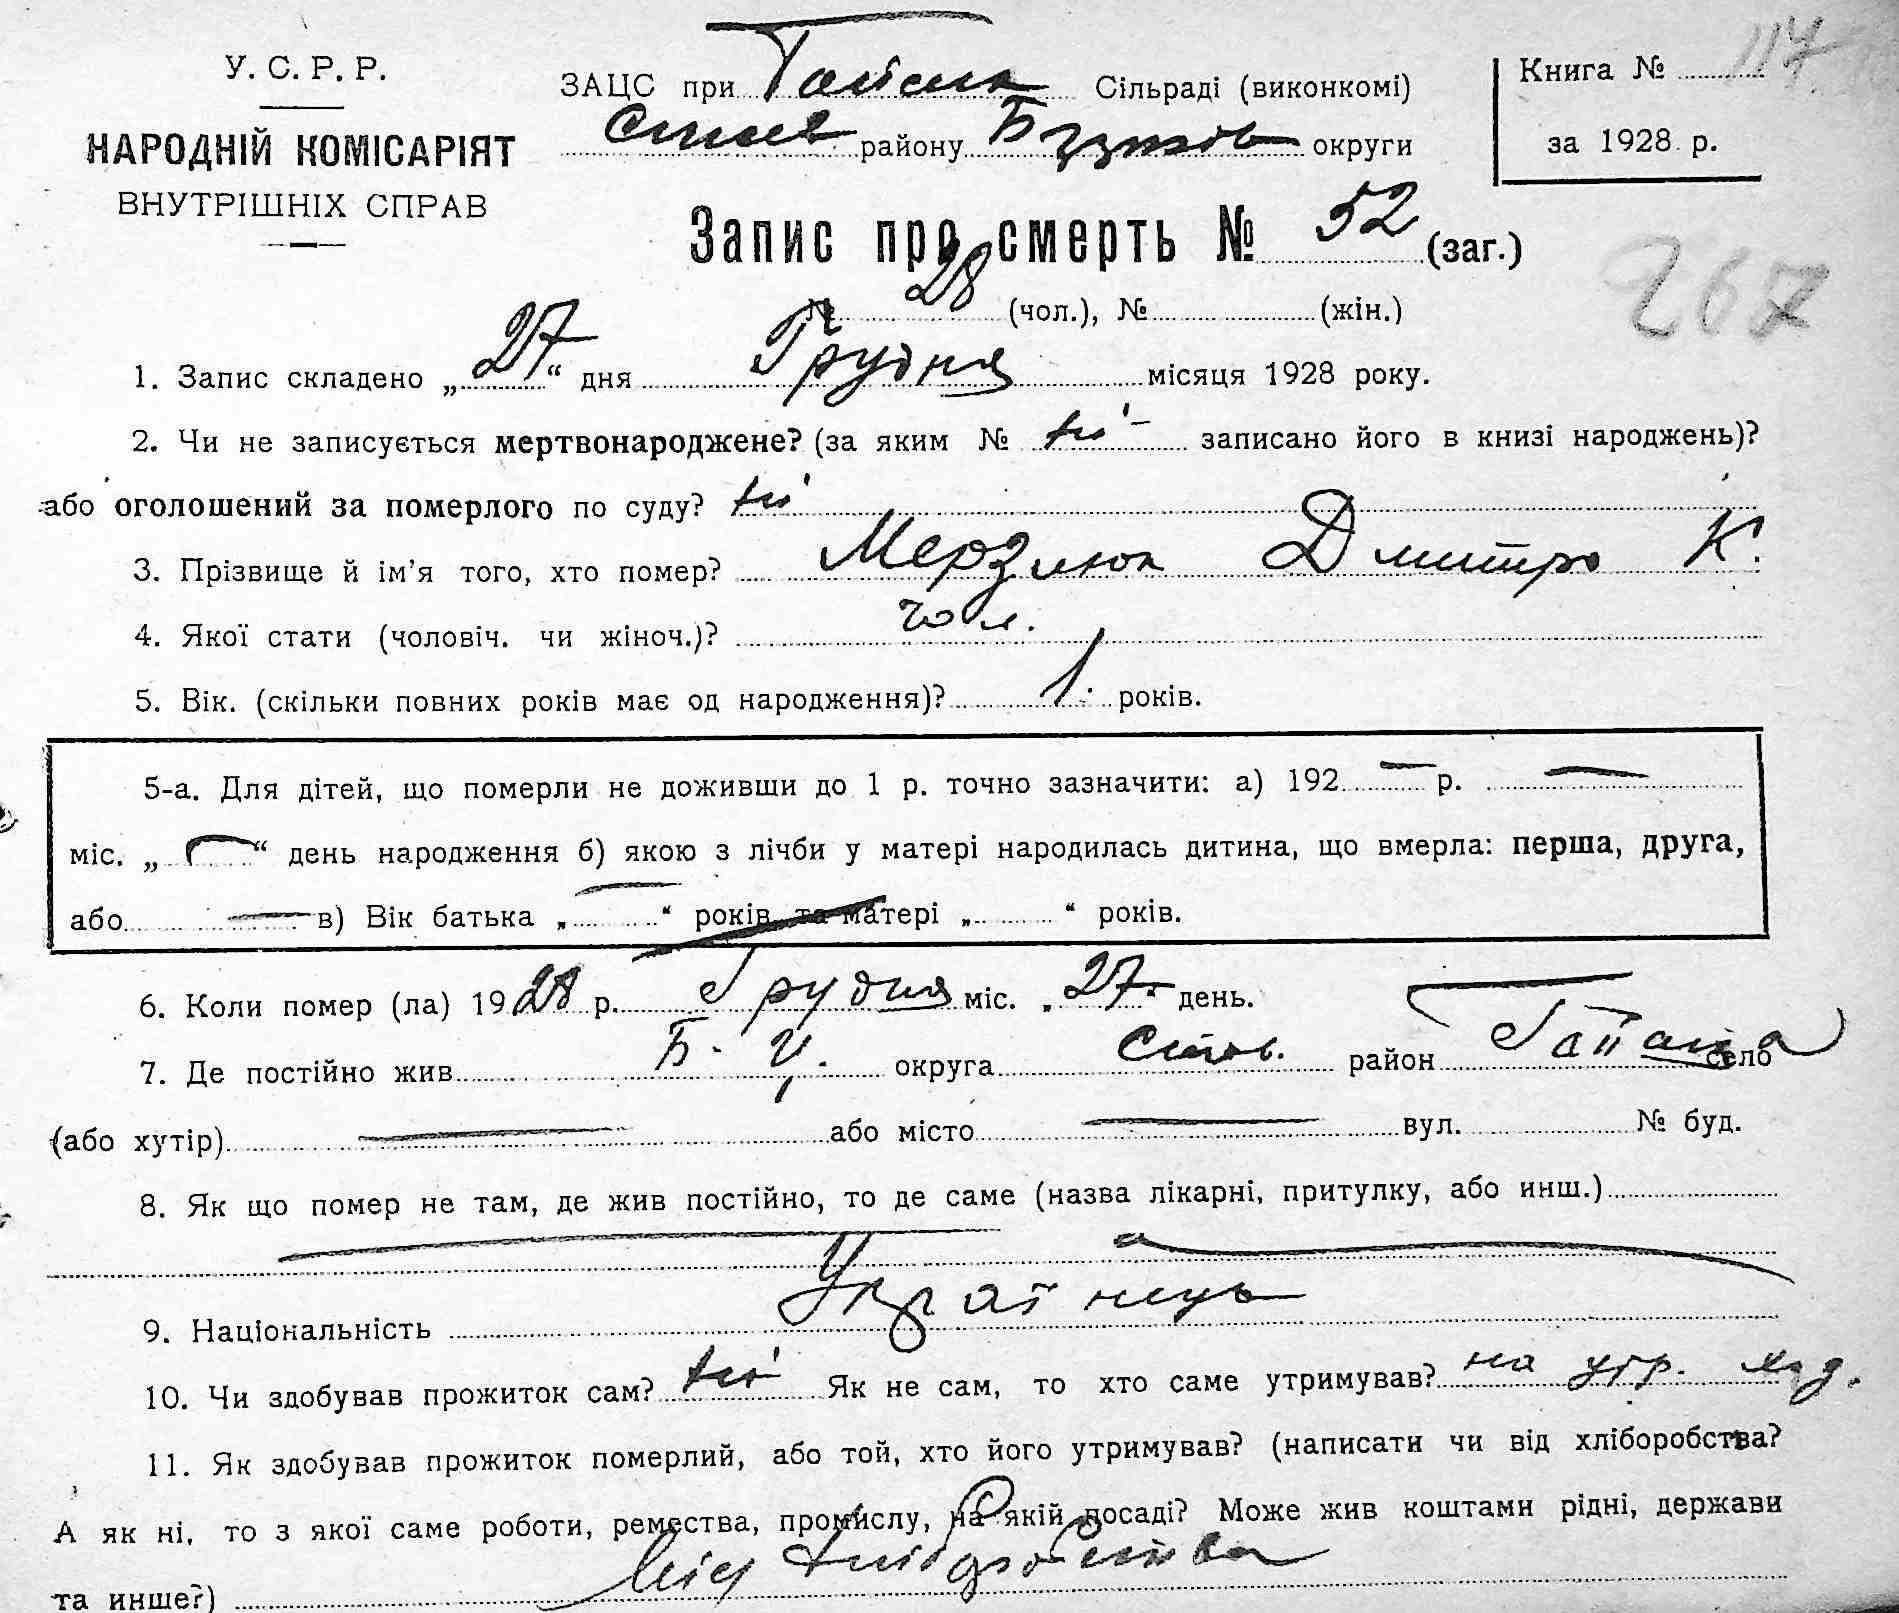 117
У. С. Р. Р.
НАРОДНІЙ КОМІСАРІЯТ
ВНУТРІШНІХ СПРАВ
ЗАЦС при Сільраді (виконкомі)
району округи
Книга №
за 1928 р.
Запис про смерть № 52 (заг.)
267
№ 28 (чол.), № (жін.)
1. Запис складено „27“ дня Грудня місяця 1928 року.
2. Чи не записується мертвонароджене? (за яким № ні - записано його в книзі народжень)?
або оголошений за померлого по суду? ні
3. Прізвище й ім'я того, хто помер? Мерзлюк Дмитро К.
4. Якої стати (чоловіч. чи жіноч.)? чол.
5. Вік. (скільки повних років має од народження)? 1 років.
5-а. Для дітей, що померли не доживши до 1 р. точно зазначити: а) 192 — р. —
міс. „ — “ день народження б) якою з лічби у матері народилась дитина, що вмерла: перша, друга,
або — в) Вік батька „ — “ років, та матері „ “ років.
6. Коли помер (ла) 1928 р. Грудня міс. „27“ день.
7. Де постійно жив Б. Ц. округа район село
(або хутір) — або місто — вул. № буд.
8. Як що помер не там, де жив постійно, то де саме (назва лікарні, притулку, або инш.)
9. Національність Українець
10. Чи здобував прожиток сам? ні Як не сам, то хто саме утримував? на утр.
11. Як здобував прожиток померлий, або той, хто його утримував? (написати чи від хліборобства?
А як ні, то з якої саме роботи, ремества, промислу, на якій посаді? Може жив коштами рідні, держави
та инше?) Від хліборобства